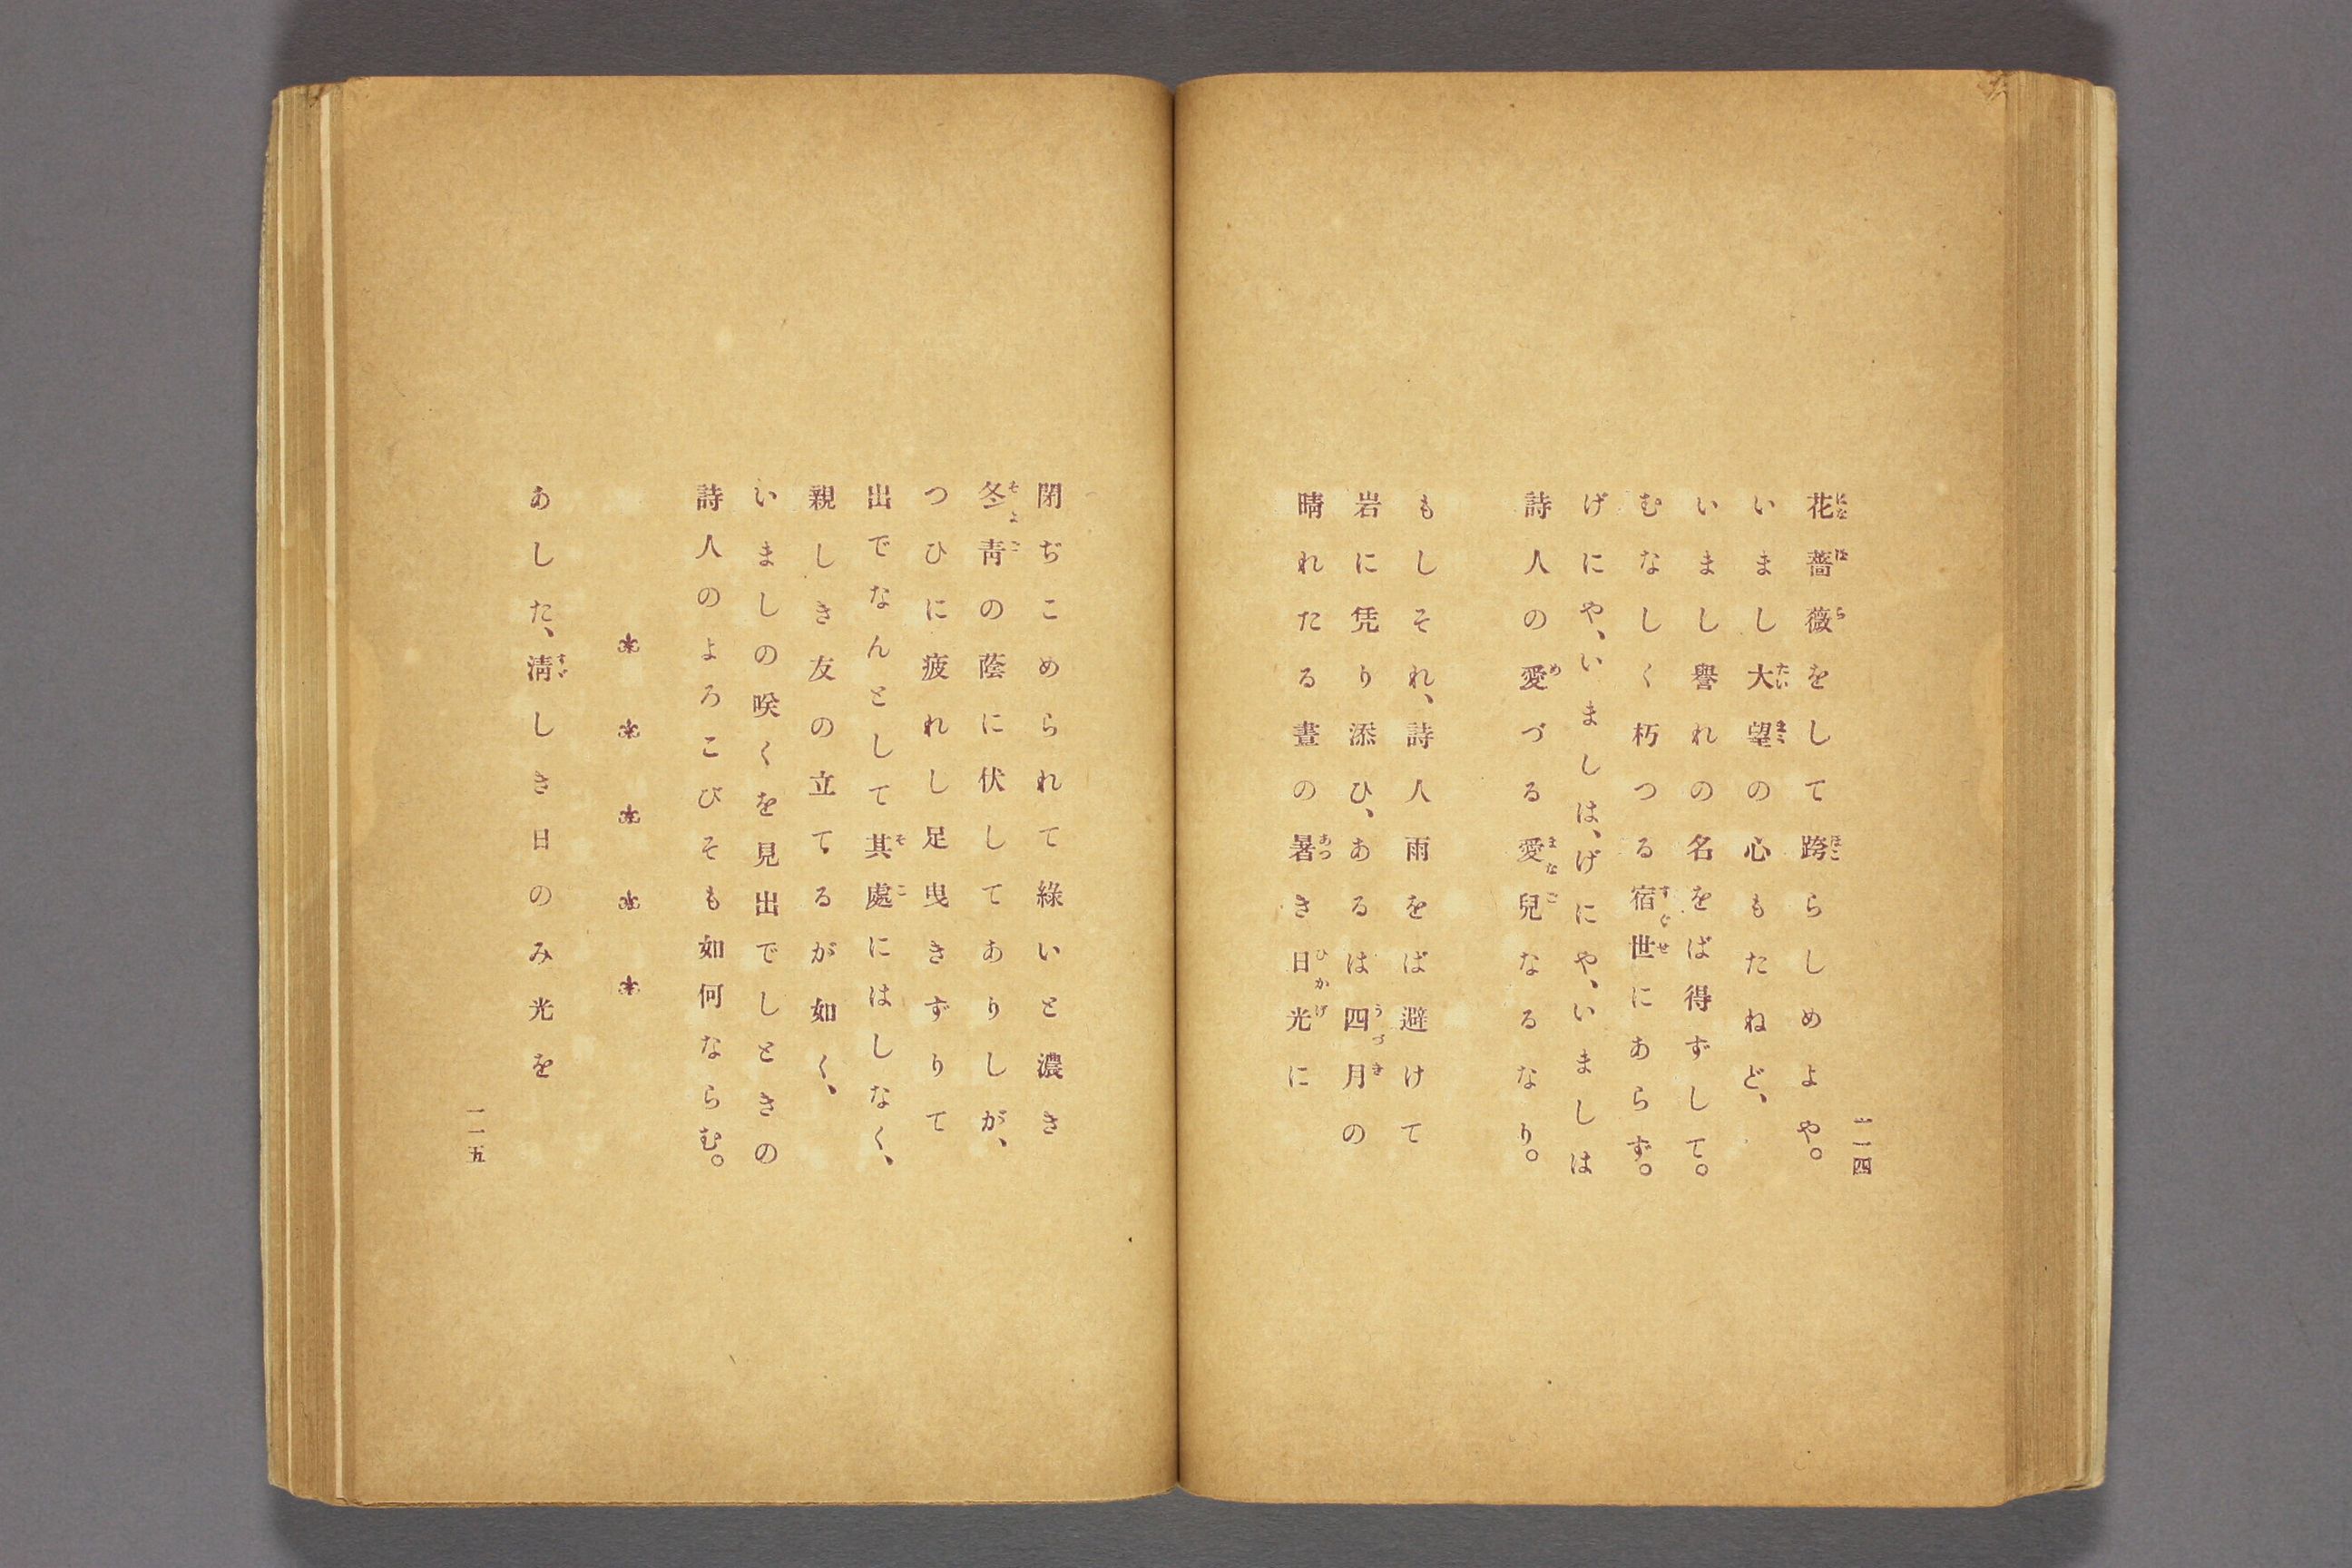 一一四
花薔薇をして跨らしめよや。
いまし大望の心もたねど、
いまし譽れの名をば得ずして。
むなしく朽つる宿世にあらず。
げにや、いましは、げにや、いましは
詩人の愛づる愛兒なるなり。
もしそれ、詩人雨をば避けて
岩に凭り添ひ、あるは四月の
晴れたる晝の暑き日光に
閉ぢこめられて綠いと濃き
冬靑の蔭に伏してありしが、
つひに疲れし足曳きずりて
出でなんとして其處にはしなく、
親しき友の立てるが如く、
いましの咲くを見出でしときの
詩人のよろこびそも如何ならむ。
あした、淸しき日のみ光を
一一五